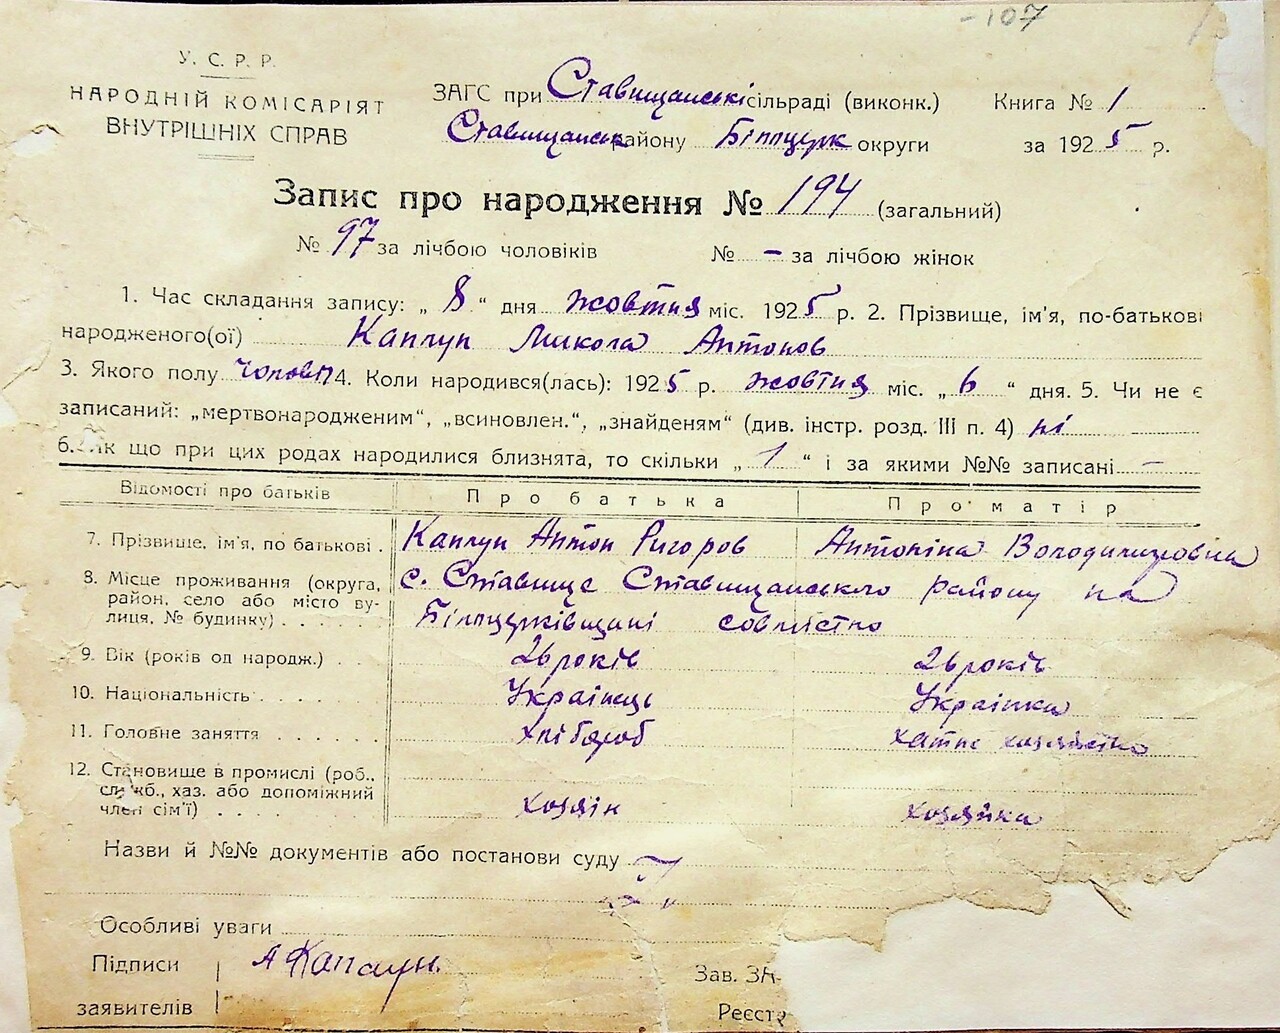 -107
У. С. Р. Р.
НАРОДНІЙ КОМІСАРІЯТ
ВНУТРІШНІХ СПРАВ
ЗАГС при Ставищанські сільраді (виконк.) Книга № 1
Ставищанськ району Білоцерк округи за 1925 р.
Запис про народження № 194 (загальний)
№ 97 за лічбою чоловіків № - за лічбою жінок
1. Час складання запису: „ 8 “ дня жовтня міс. 1925 р. 2. Прізвище, ім'я, по-батькові
народженого(ої) Каплун Микола Антонов
3. Якого полу чолов 4. Коли народився(лась): 1925 р. жовтня міс. „ 6 “ дня. 5. Чи не є
записаний: „мертвонародженим“, „всиновлен.“, „знайденям“ (див. інстр. розд. III п. 4) ні
6. Як що при цих родах народилися близнята, то скільки „ 1 “ і за якими №№ записані -
Відомості про батьків Про батька Про матір
7. Прізвище, ім'я, по батькові . Каплун Антон Ригоров Антоніна Володимировна
8. Місце проживання (округа, с. Ставище Ставищанського району на
район, село або місто ву-
лиця, № будинку) . . . . . . Білоцерківщині совмістно
9. Вік (років од народж.) . . 26 років 26 років
10. Національність . . . . . Українець Українка
11. Головне заняття . . . . . . Хлібороб хатнє хозяйство
12. Становище в промислі (роб.,
служб., хаз. або допоміжний
член сім'ї) . . . . . . . . хозяїн хозяйка
Назви й №№ документів або постанови суду
Особливі уваги
Підписи А Каплун Зав. ЗА
заявителів Реєст